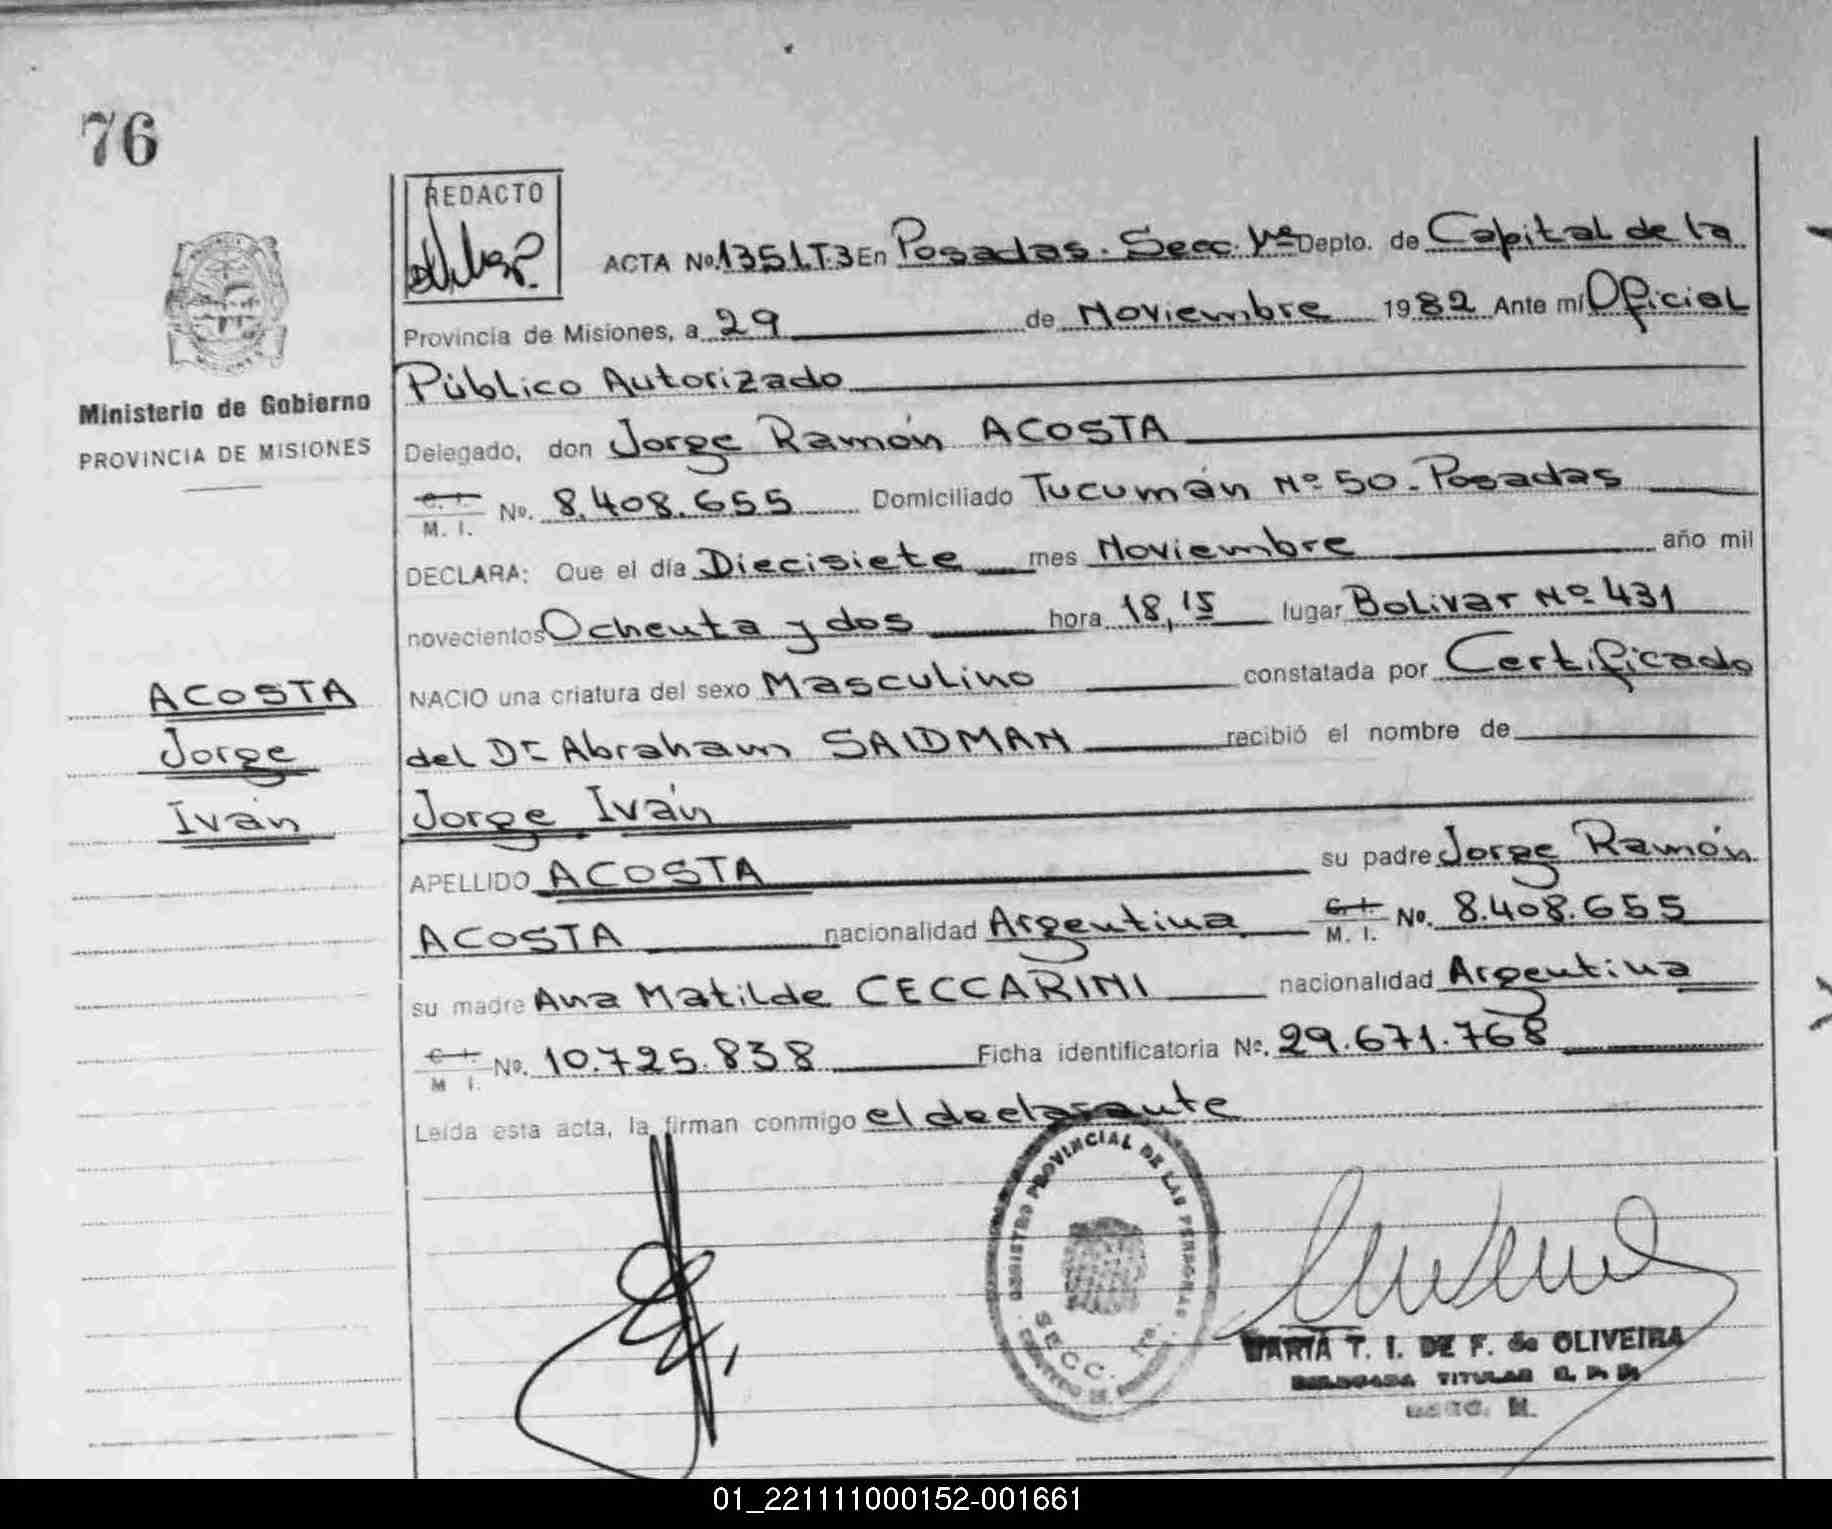 76
REDACTO
ACTA Nº 1351.T.3 En Posadas. Secc. 1ª Depto. de Capital de la
Provincia de Misiones, a 29 de Noviembre 1982 Ante mí Oficial
Público Autorizado
Ministerio de Gobierno
PROVINCIA DE MISIONES
Delegado, don Jorge Ramón ACOSTA
C. I.
M. I. Nº. 8.408.655 Domiciliado Tucumán Nº 50 - Posadas
DECLARA: Que el día Diecisiete mes Noviembre año mil
novecientos Ochenta y dos hora 18,15 lugar Bolivar Nº 431
ACOSTA
NACIO una criatura del sexo Masculino constatada por Certificado
Jorge
del Dr Abraham SAIDMAN recibió el nombre de
Iván
Jorge Iván
APELLIDO ACOSTA su padre Jorge Ramón
ACOSTA nacionalidad Argentina C. I. M. I. Nº. 8.408.655
su madre Ana Matilde CECCARINI nacionalidad Argentina
C. I.
M. I. Nº. 10.725.838 Ficha identificatoria Nº. 29.671.768
Leída esta acta, la firman conmigo el declarante
REGISTRO PROVINCIAL DE LAS PERSONAS
SECC. 1ra.
MARIA T. I. DE F. de OLIVEIRA
DELEGADA TITULAR R. P. P.
01_221111000152-001661